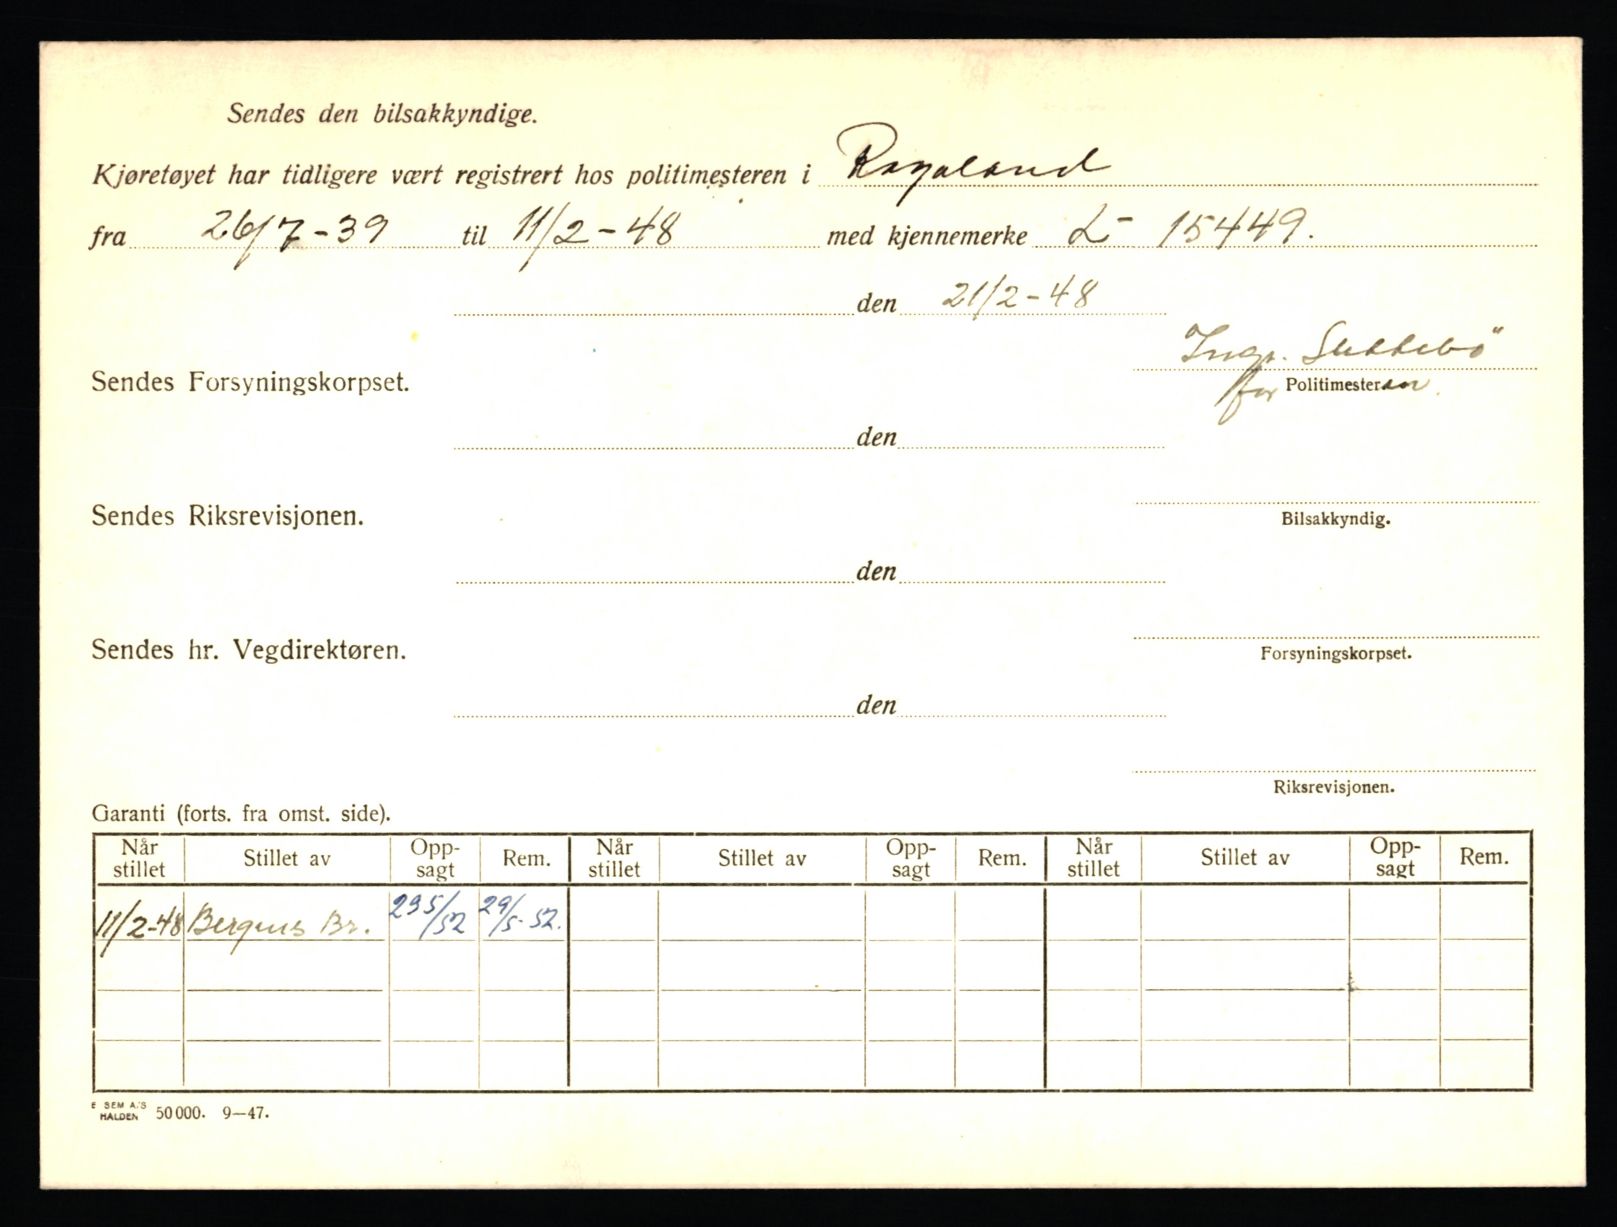 Sendes den bilsakkyndige.
Kjøretøyet har tidligere vært registrert hos politimesteren i Rogaland
fra 26/7-39 til 11/2-48 med kjennemerke L- 15449.
den 21/2-48
Ingr.
Sendes Forsyningskorpset.
for Politimesteren.
den
Sendes Riksrevisjonen.
Bilsakkyndig.
den
Sendes hr. Vegdirektøren.
Forsyningskorpset.
den
Riksrevisjonen.
Garanti (forts. fra omst. side).
Når stillet Stillet av Opp-sagt Rem. Når stillet Stillet av Opp-sagt Rem. Når stillet Stillet av Opp-sagt Rem.
11/2-48 Bergens Br. 295/52 29/5-52.
E SEM A/S HALDEN 50 000. 9—47.